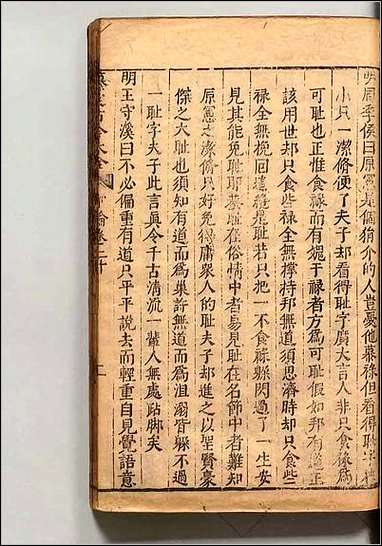 明周季侯曰原憲是個狷介的人豈憂他慕祿但看得耻字
小只一潔脩便了夫子却看得耻字廣大言人非只食祿爲
可耻也正惟食祿而有媿于祿者方爲可耻假如邦有道正
該用世却只食些祿全無撑持邦無道須思濟時却只食些
祿全無挽回這纔是耻若只把一不食祿躱閃過了一生安
見其能免耻耶葢耻在俗情中者易見耻在名節中者難知
原憲之潔脩只好免得庸衆人的耻夫子却進之以聖賢豪
傑之大耻也須知有道而爲巢許無道而爲沮溺皆躱不過
一耻字夫子此言眞令千古清流一輩人無處跕脚矣
明王守溪曰不必偏重有道只平平說去而輕重自見覺語意
古今大全 論卷二十